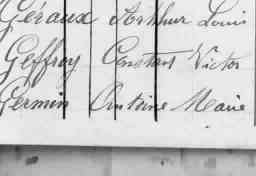 Géraux Arthur Louis
Geffroy Constant Victor
Germin Antoine Marie